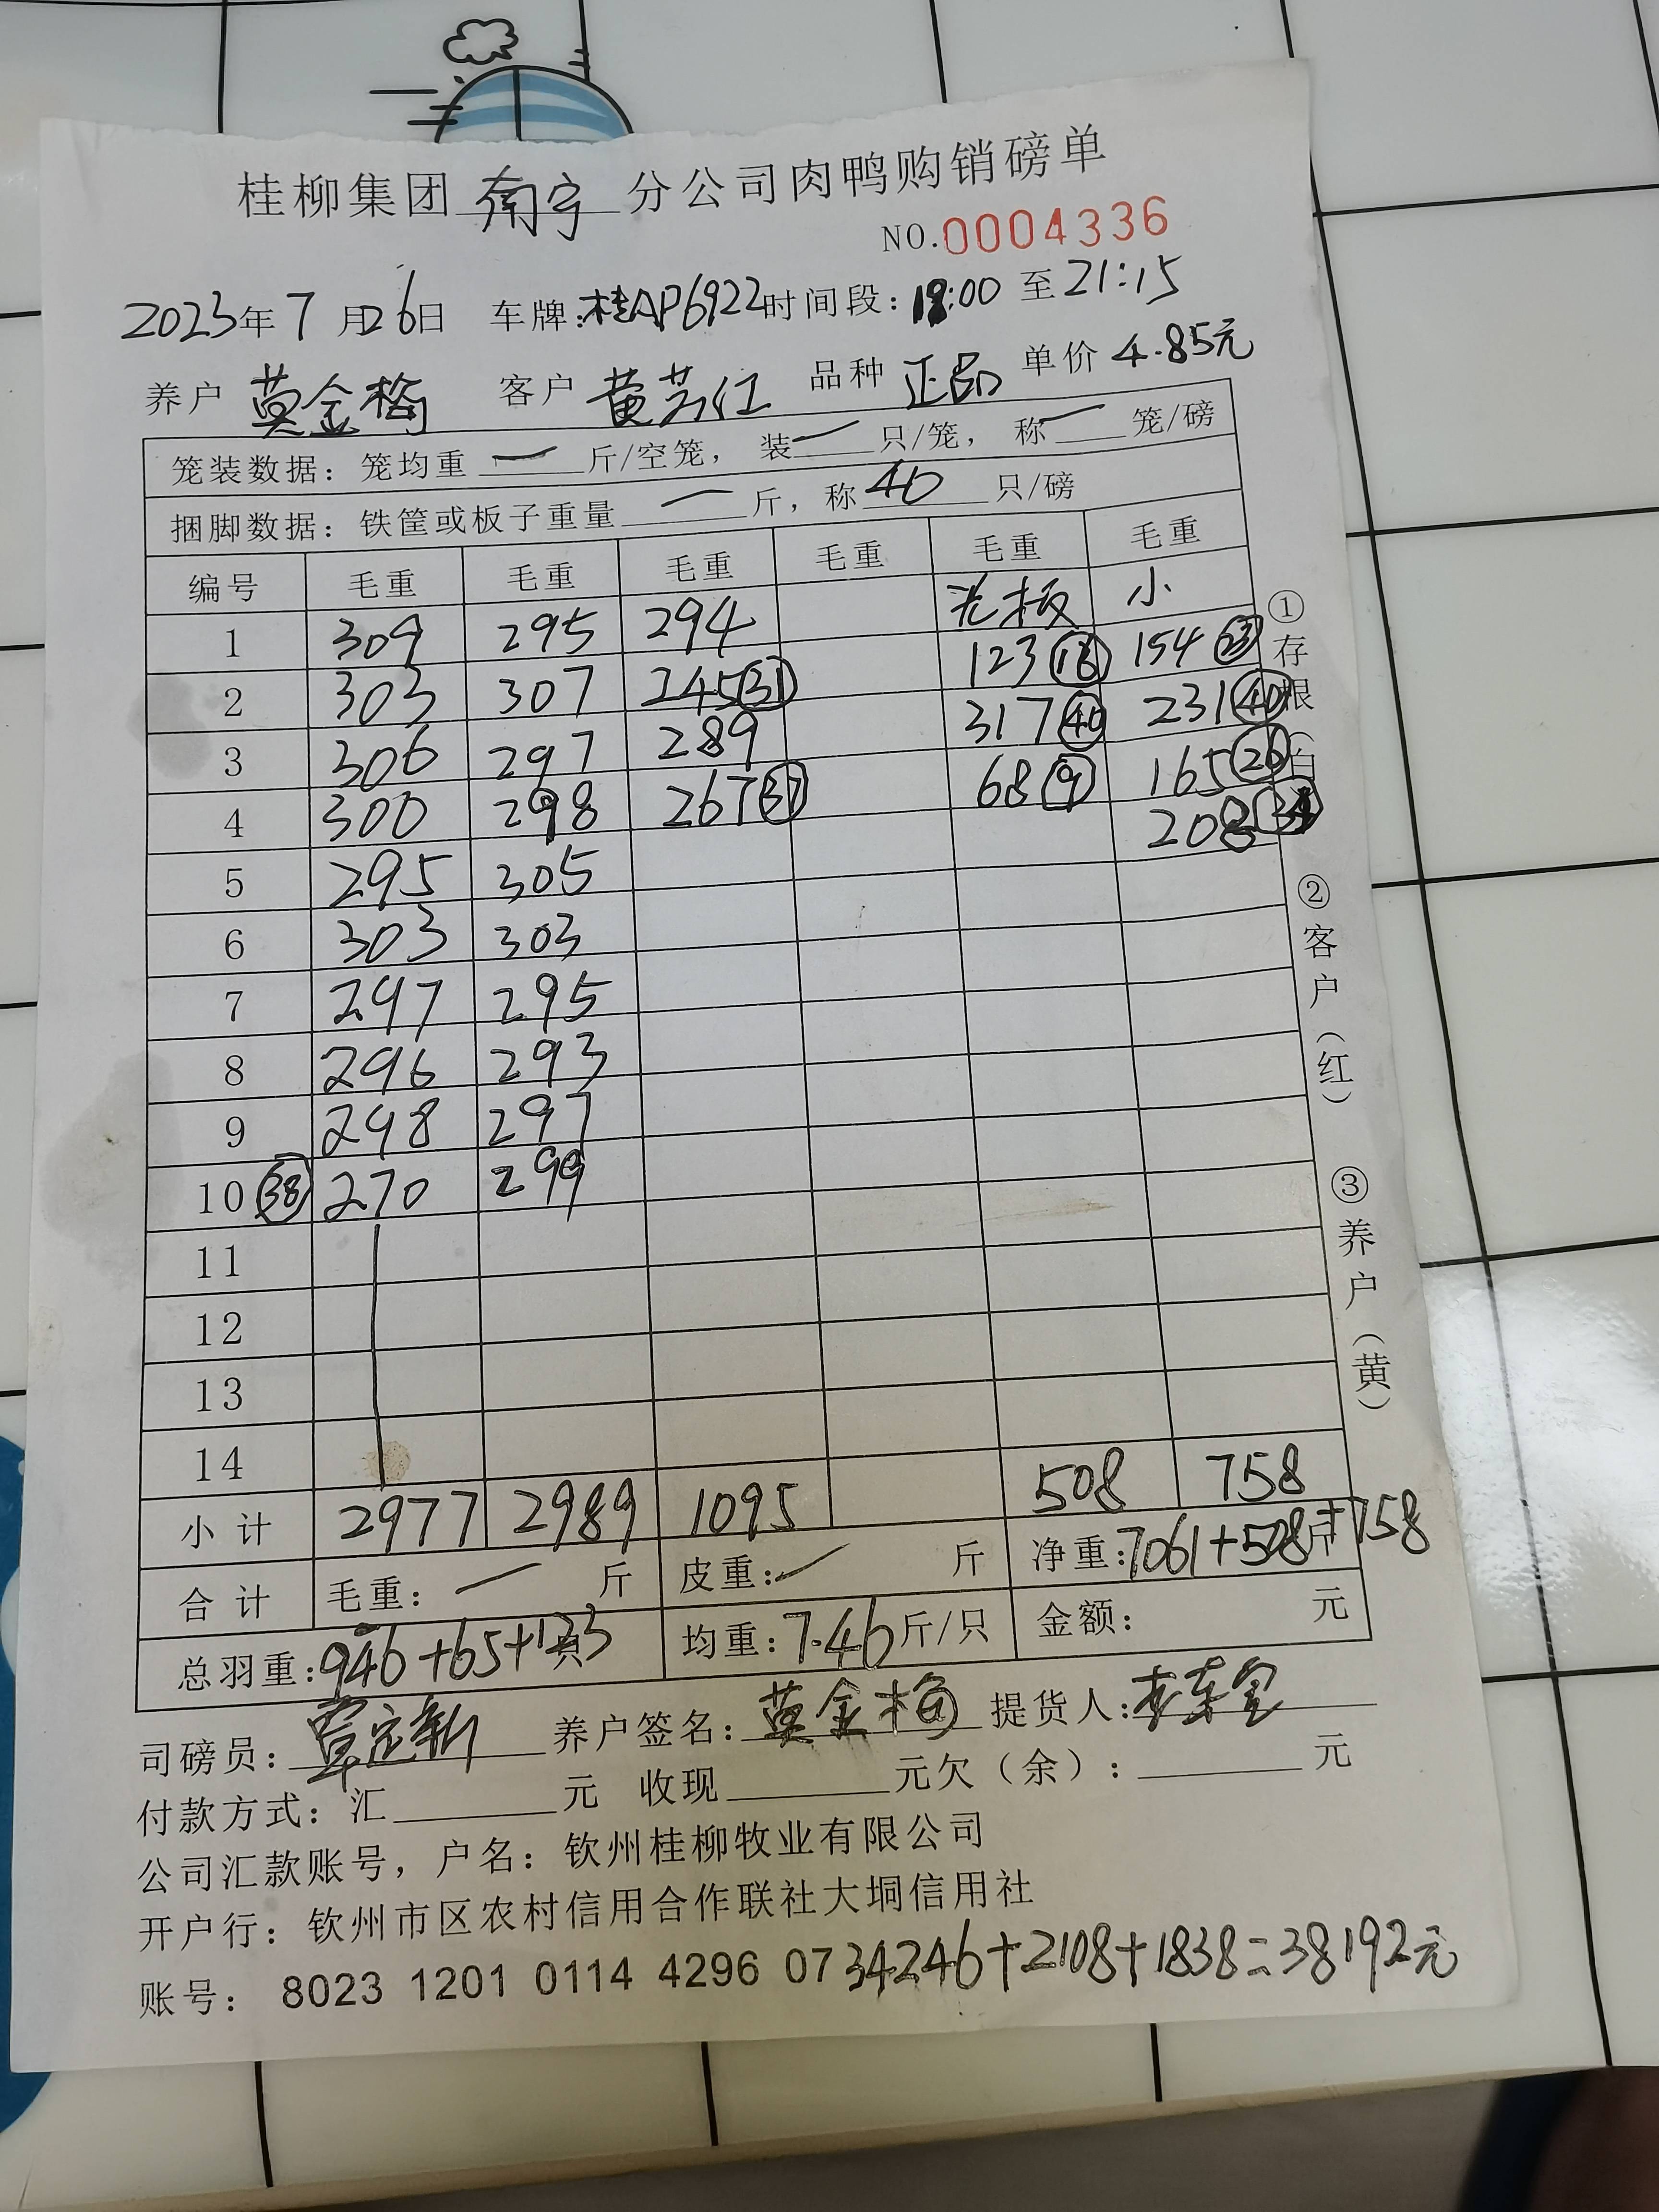 桂柳集团 南宁 分公司肉鸭购销磅单
NO.0004336
2023年7月26日 车牌:桂AP6922 时间段:18:00 至 21:15
养户 莫金梅 客户 黄芸红 品种 正品 单价 4.85元
笼装数据: 笼均重 一 斤/空笼, 装 一 只/笼, 称 一 笼/磅
捆脚数据: 铁筐或板子重量 一 斤, 称 40 只/磅
编号 毛重 毛重 毛重 毛重 毛重 毛重
光板 小
1 309 295 294 123 (16) 154 (23)
2 303 307 245 (31) 317 (40) 231 (40)
3 306 297 289 68 (9) 165 (26)
4 300 298 267 (37) 208
5 295 305
6 303 303
7 297 295
8 296 293
9 298 297
10 (38) 270 299
11
12
13
14
小计 2977 2989 1095 508 758
合计 毛重: 一 斤 皮重: 一 斤 净重:7061+508+758 斤
总羽重:946+65+123 均重:7.46斤/只 金额: 元
司磅员: 覃定新 养户签名: 莫金梅 提货人:
付款方式: 汇 元 收现 元欠(余): 元
公司汇款账号, 户名: 钦州桂柳牧业有限公司
开户行: 钦州市区农村信用合作联社大垌信用社
账号: 8023 1201 0114 4296 07 34246+2108+1838=38192元
①存根(白) ②客户(红) ③养户(黄)